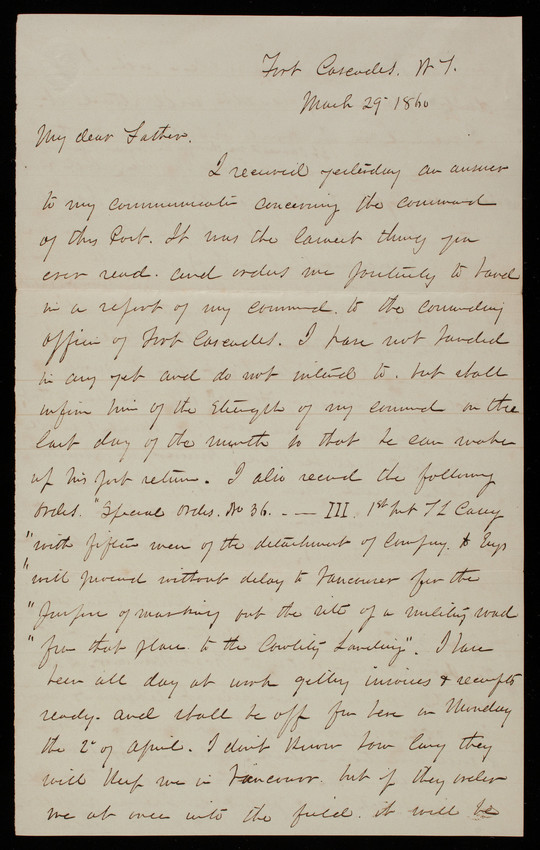 Fort Cascades. W T.
March 29 1860
My dear Father.
I received yesterday an answer
to my communicatn concerning the command
of this Post. It was the lamest thing you
ever read. and orders me positively to hand
in a report of my command. to the comanding
Officer of Fort Cascades. I have not handed
in any yet and do not intend to. but shall
inform him of the strength of my command on the
last day of the month so that he can make
up his post return. I also received the following
orders. "Special Orders. No 36. - — III. 1st Lut T L Casey
"with fifteen men of the detachment of Company. A Engs
"will proceed without delay to Vancouver for the
"purpose of marking out the site of a military road
"from that place to the Cowlitz Landing". I have
been all day at work getting invoices & receipts
ready. and shall be off from here on Monday
the 2d of April. I don't know how long they
will keep me in Vancouver. but if they order
me at once into the field. it will be